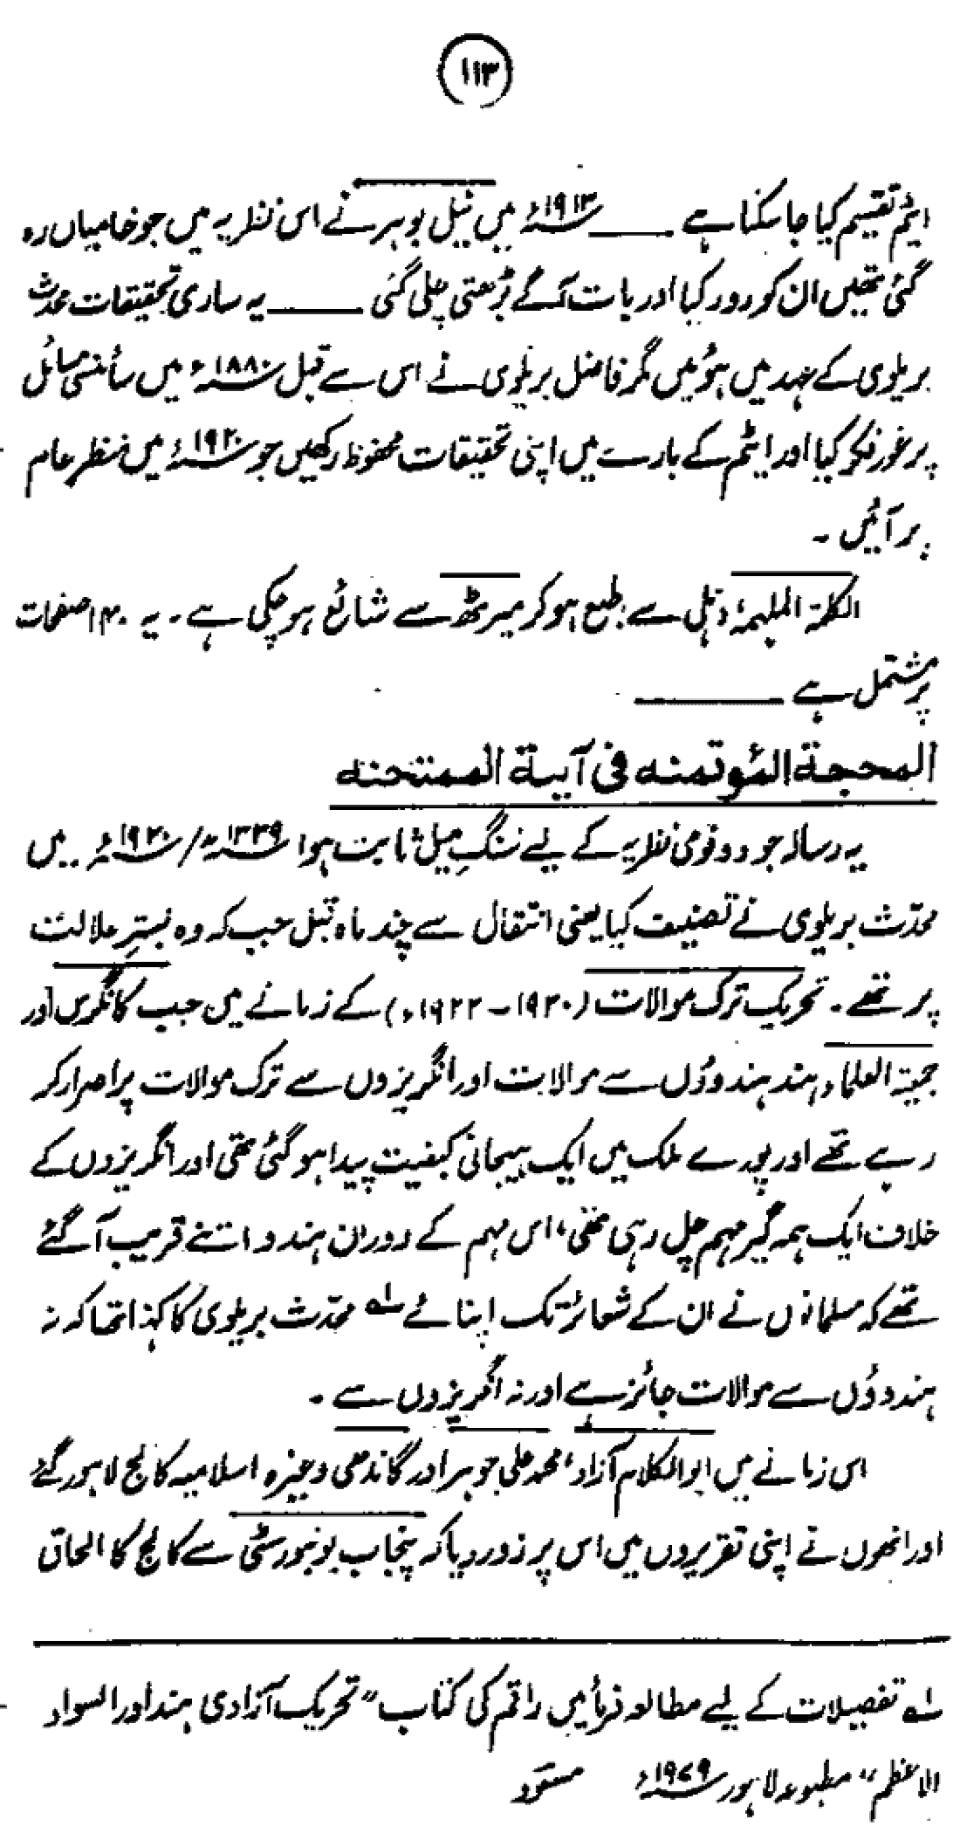 ۱۱۳
ایٹم تقسیم کیا جا سکتا ہے ——— ۱۹۱۳ء میں نیل بوہر نے اس نظریہ میں جو خامیاں رہ
گئی تھیں ان کو دور کیا اور بات آگے بڑھتی چلی گئی ——— یہ ساری تحقیقات محدث
بریلوی کے عہد میں ہوئیں مگر فاضل بریلوی نے اس سے قبل ۱۸۸۰ء میں سائنسی مسائل
پر غور فکر کیا اور ایٹم کے بارے میں اپنی تحقیقات محفوظ رکھیں جو ۱۹۲۰ء میں منظر عام
پر آئیں ۔
الکلمۃ الملہمۃ دہلی سے طبع ہو کر میرٹھ سے شائع ہو چکی ہے ۔ یہ ۱۴۰ صفحات
پر مشتمل ہے ———
المحجۃ المؤتمنہ فی آیۃ الممتحنہ
یہ رسالہ جو دو قومی نظریہ کے لیے سنگِ میل ثابت ہوا ۱۳۳۹ھ/۱۹۲۰ء میں
محدّث بریلوی نے تصنیف کیا یعنی انتقال سے چند ماہ قبل جب کہ وہ بسترِ علالت
پر تھے ۔ تحریک ترک موالات (۱۹۲۰ – ۱۹۲۲ء) کے زمانے میں جب کانگرس اور
جمعیۃ العلماء ہند ہندوؤں سے موالات اور انگریزوں سے ترک موالات پر اصرار کر
رہے تھے اور پورے ملک میں ایک ہیجانی کیفیت پیدا ہو گئی تھی اور انگریزوں کے
خلاف ایک ہمہ گیر مہم چل رہی تھی، اس مہم کے دوران ہندو اتنے قریب آ گئے
تھے کہ مسلمانوں نے ان کے شعائر تک اپنائے ؂۱ محدّث بریلوی کا کہنا تھا کہ نہ
ہندوؤں سے موالات جائز ہے اور نہ انگریزوں سے ۔
اس زمانے میں ابوالکلام آزاد، محمد علی جوہر اور گاندھی وغیرہ اسلامیہ کالج لاہور گئے
اور انھوں نے اپنی تقریروں میں اس پر زور دیا کہ پنجاب یونیورسٹی سے کالج کا الحاق
؂۱ تفصیلات کے لیے مطالعہ فرمائیں راقم کی کتاب "تحریک آزادی ہند اور السواد
الاعظم" مطبوعہ لاہور ۱۹۷۹ء مسعود